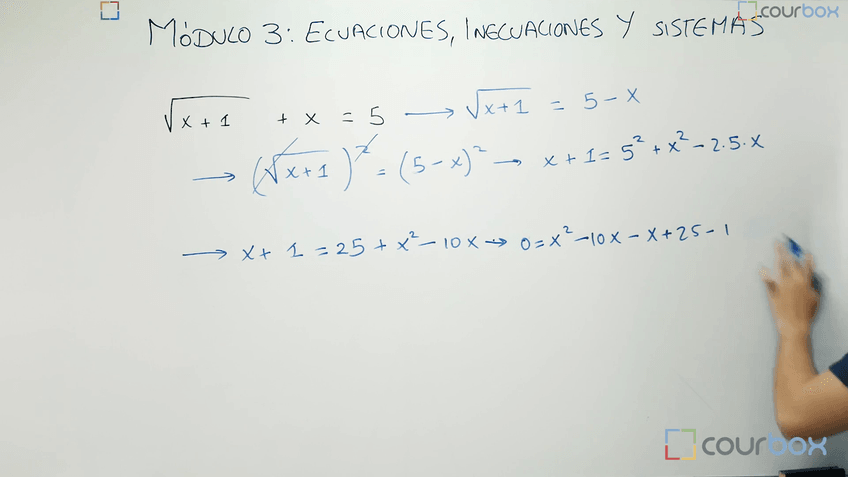 courbox
MÓDULO 3: ECUACIONES, INECUACIONES Y SISTEMAS
√(x+1) + x = 5 → √(x+1) = 5 - x
→ (√(x+1))² = (5-x)² → x + 1 = 5² + x² - 2·5·x
→ x + 1 = 25 + x² - 10x → 0 = x² - 10x - x + 25 - 1
courbox